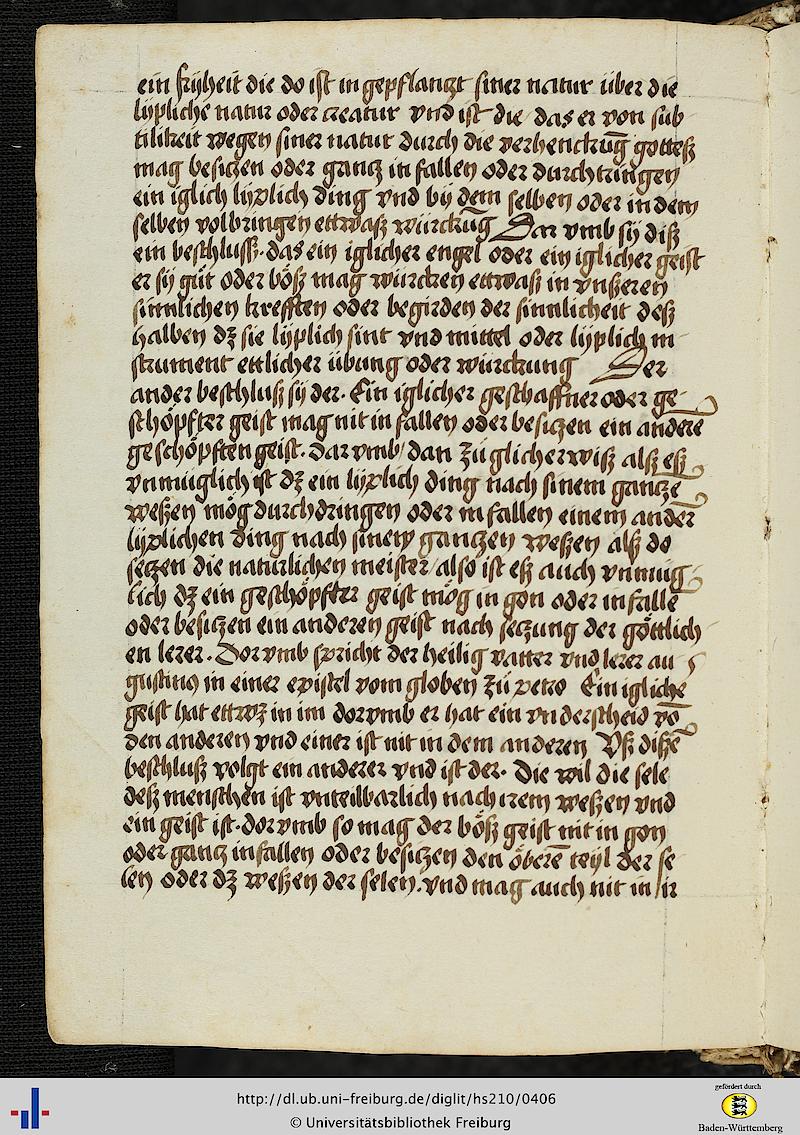 ein frÿheit die do ist in gepflanczt siner natur über die
lÿpliche natur oder creatur vnd ist die das er von sub
tilikeit wegen siner natur durch die verhenckūg gotteß
mag besiczen oder gancz in fallen oder durchtringen
ein iglich lÿplich ding vnd bÿ dem selben oder in dem
selben volbringen ettwaß würckūg Dar vmb sÿ diß
ein beschlusß. das ein iglicher engel oder ein iglicher geist
er sÿ gůt oder böß mag würcken ettwaß in vnßeren
sinnlichen krefften oder begirden der sinnlicheit deß
halben dz sie lÿplich sint vnd mittel oder lÿplich in
strument ettlicher übung oder würckung Der
ander beschluß sÿ der. Ein iglicher geschaffner oder ge
schöpfter geist mag nit in fallen oder besiczen ein anderē
geschöpften geist. dar vmb dan zů glicher wiß alß eß
vnmüglich ist dz ein lÿplich ding nach sinem ganczē
weßen mög durchdringen oder in fallen einem ander
lÿplichen ding nach sinem ganczen weßen alß do
seczen die naturlichen meister also ist eß auch vnmüg
lich dz ein geschöpfter geist mög in gon oder in fallē
oder besiczen ein anderen geist nach seczung der göttlich
en lerer. Dor vmb spricht der heilig vatter vnd lerer au
gustinus in einer epistel vom globen zů petro Ein iglichē
geist hat ettwz in im dor vmb er hat ein vnderscheid vō
den anderen vnd einer ist nit in dem anderen Vß dißē
beschluß volgt ein anderer vnd ist der. Die wil die sele
deß menschen ist vnteilbarlich nach irem weßen vnd
ein geist ist. dor vmb so mag der böß geist nit in gon
oder gancz in fallen oder besiczen den öberē teÿl der se
len oder dz weßen der selen. vnd mag auch nit in ir
http://dl.ub.uni-freiburg.de/diglit/hs210/0406
© Universitätsbibliothek Freiburg
gefördert durch
Baden-Württemberg